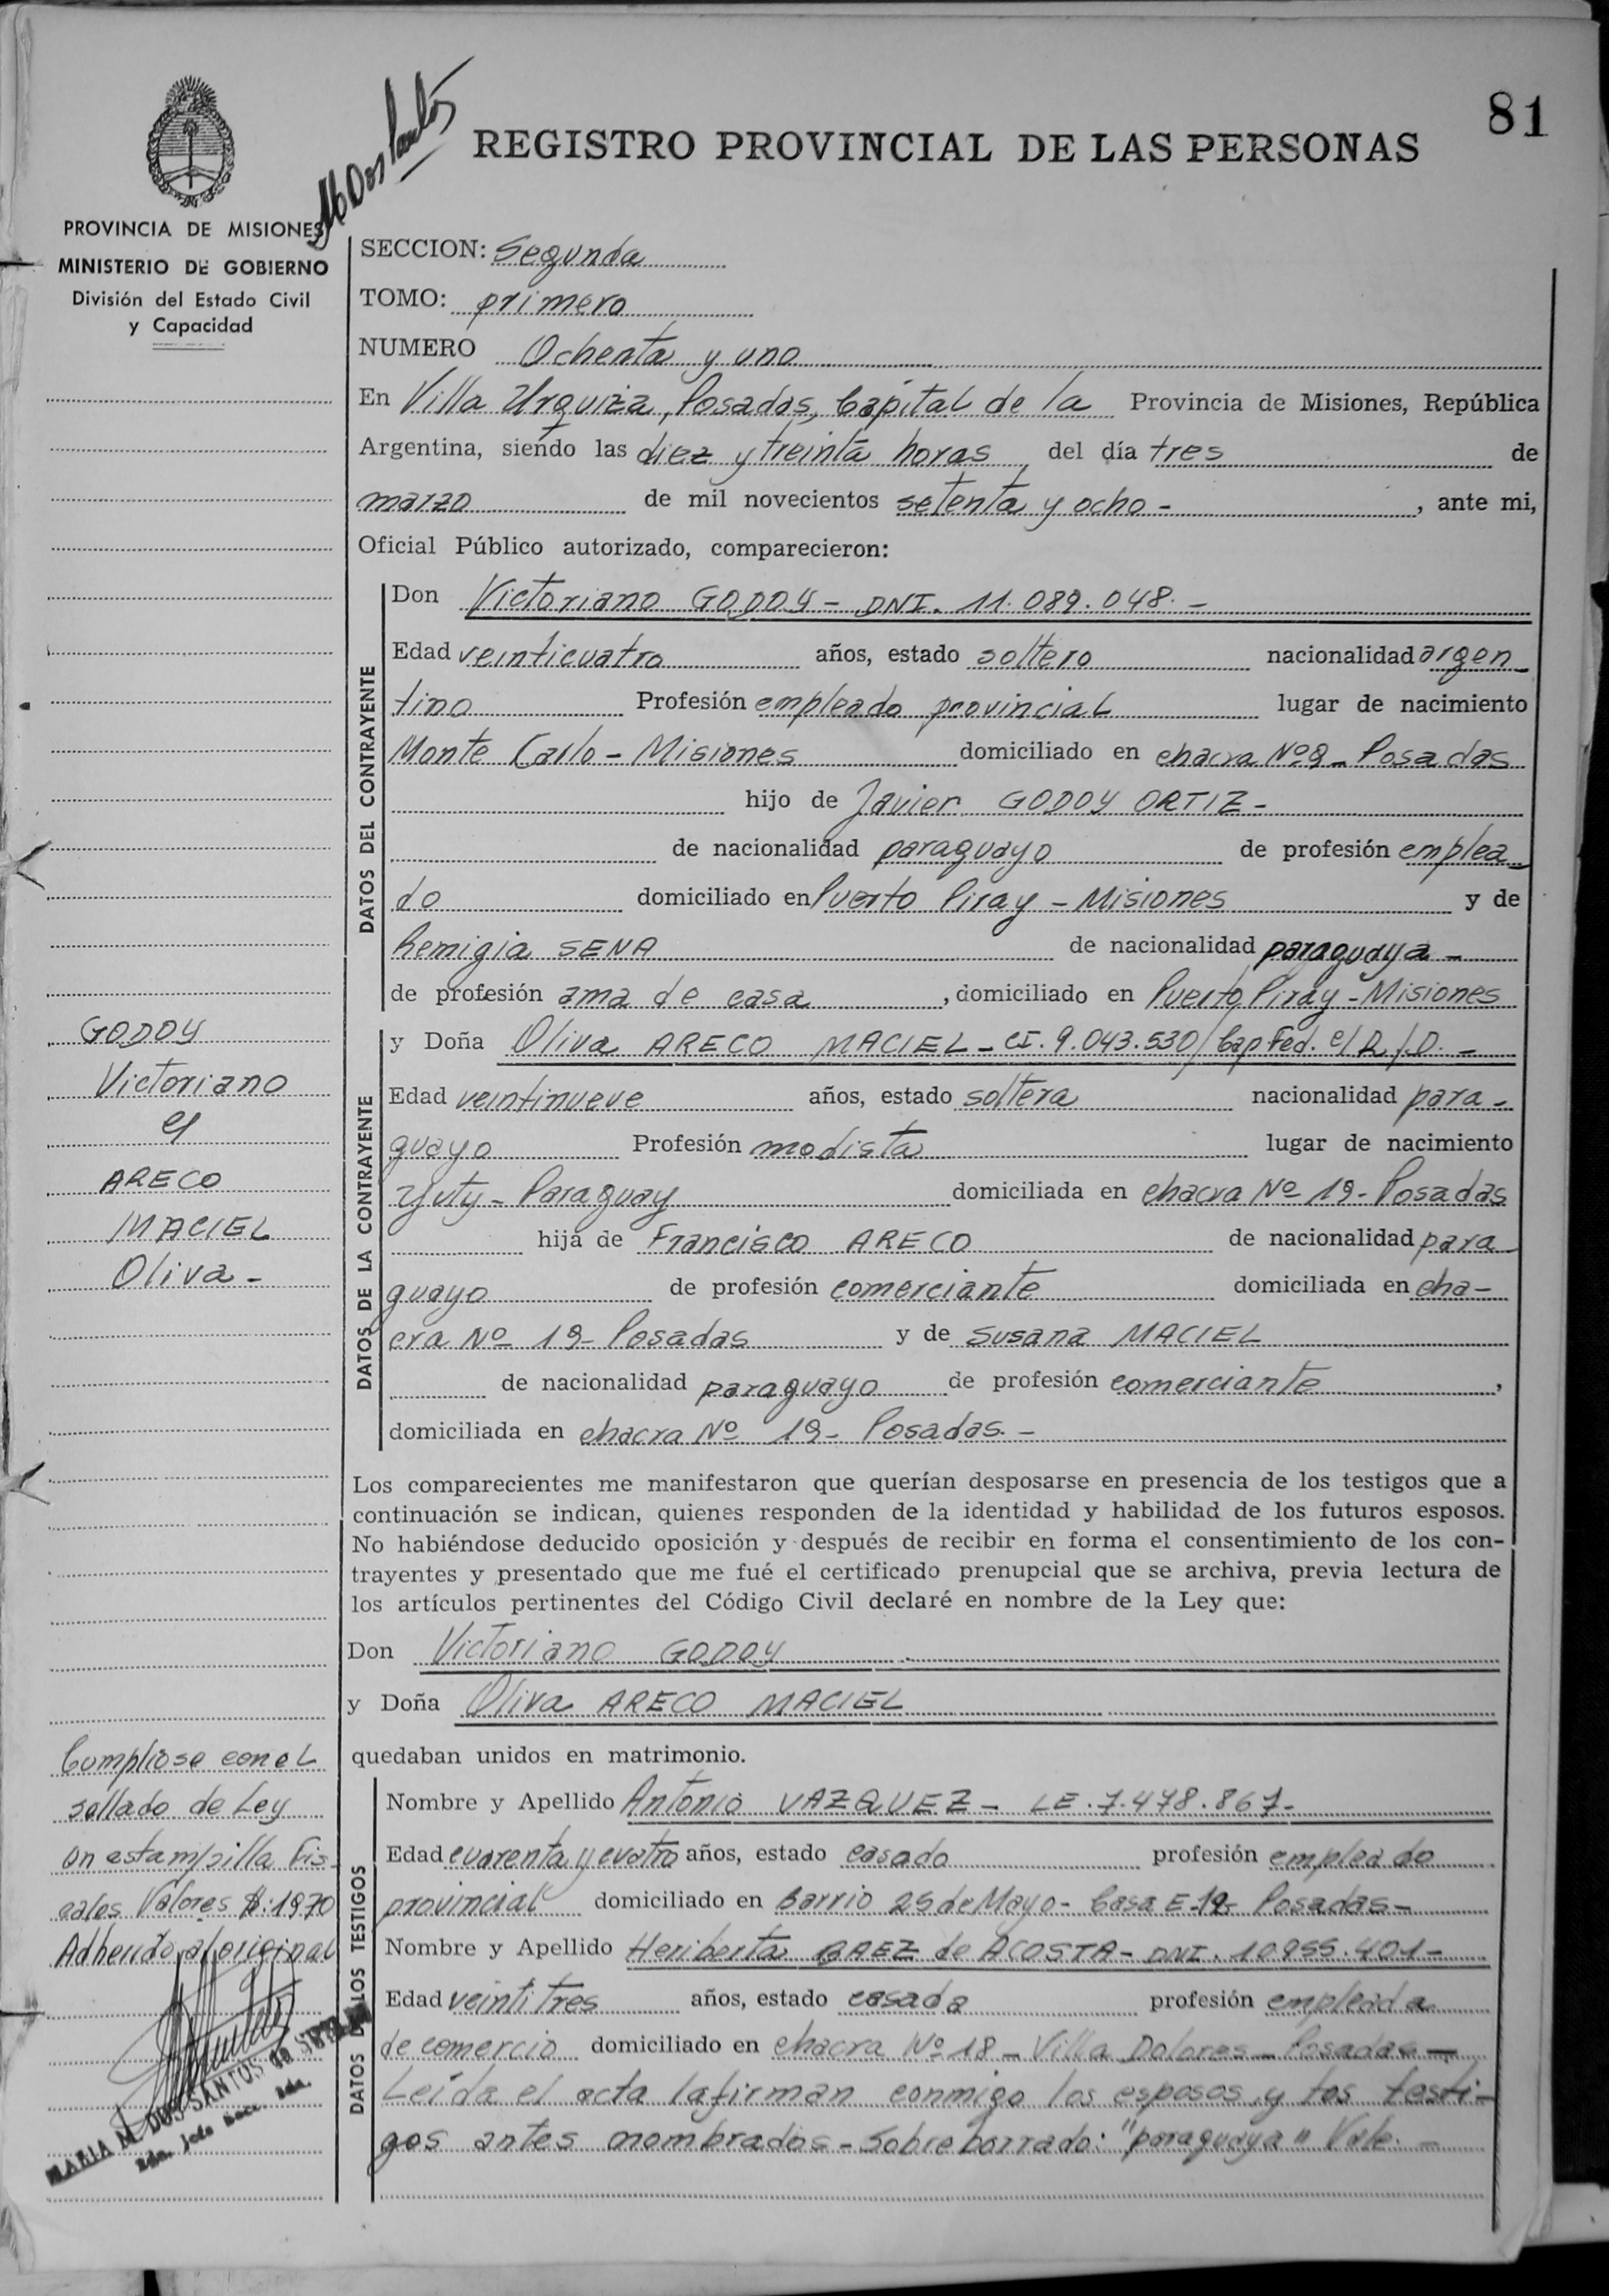 81
REGISTRO PROVINCIAL DE LAS PERSONAS
PROVINCIA DE MISIONES
MINISTERIO DE GOBIERNO
División del Estado Civil
y Capacidad
SECCION: Segunda
TOMO: primero
NUMERO Ochenta y uno
En Villa Urquiza, Posadas, Capital de la Provincia de Misiones, República
Argentina, siendo las diez y treinta horas, del día tres de
marzo de mil novecientos setenta y ocho -, ante mi,
Oficial Público autorizado, comparecieron:
DATOS DEL CONTRAYENTE
Don Victoriano GODOY - DNI. 11.089.048. -
Edad veinticuatro años, estado soltero nacionalidad argen
tino Profesión empleado provincial lugar de nacimiento
Monte Carlo - Misiones domiciliado en chacra Nº 9 - Posadas
hijo de Javier GODOY ORTIZ -
de nacionalidad paraguayo de profesión emplea
do domiciliado en Puerto Piray - Misiones y de
Remigia SENA de nacionalidad paraguaya -
de profesión ama de casa, domiciliado en Puerto Piray - Misiones
DATOS DE LA CONTRAYENTE
y Doña Oliva ARECO MACIEL - CI. 9.043.530/Cap Fed. e/R/D. -
Edad veintinueve años, estado soltera nacionalidad para-
guayo Profesión modista lugar de nacimiento
Yuty - Paraguay domiciliada en chacra Nº 19 - Posadas
hija de Francisco ARECO de nacionalidad para
guayo de profesión comerciante domiciliada en cha-
cra Nº 19 - Posadas y de Susana MACIEL
de nacionalidad paraguayo de profesión comerciante,
domiciliada en chacra Nº 19 - Posadas. -
GODOY
Victoriano
y
ARECO
MACIEL
Oliva -
Los comparecientes me manifestaron que querían desposarse en presencia de los testigos que a
continuación se indican, quienes responden de la identidad y habilidad de los futuros esposos.
No habiéndose deducido oposición y después de recibir en forma el consentimiento de los con-
trayentes y presentado que me fué el certificado prenupcial que se archiva, previa lectura de
los artículos pertinentes del Código Civil declaré en nombre de la Ley que:
Don Victoriano GODOY
y Doña Oliva ARECO MACIEL
quedaban unidos en matrimonio.
DATOS DE LOS TESTIGOS
Nombre y Apellido Antonio VAZQUEZ - LE. 7.478.867 -
Edad cuarenta y cuatro años, estado casado profesión empleado
provincial domiciliado en Barrio 25 de Mayo - Casa E-19 - Posadas -
Nombre y Apellido Heriberta BAEZ de ACOSTA - DNI. 10.955.401 -
Edad veintitres años, estado casada profesión empleada
de comercio domiciliado en chacra Nº 18 - Villa Dolores - Posadas -
Leída el acta la firman conmigo los esposos y los testi-
gos antes nombrados - Sobreborrado: "paraguaya" Vale. -
Cumpliose con el
sellado de Ley
en estampilla Fis
cales Valores $: 1970
Adherido al original
MARIA M. DOS SANTOS de